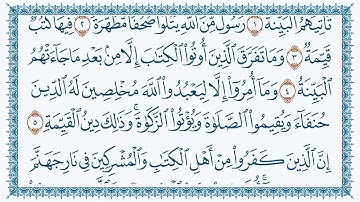 تَأْتِيَهُمُ ٱلْبَيِّنَةُ ١ رَسُولٌ مِّنَ ٱللَّهِ يَتْلُوا۟ صُحُفًا مُّطَهَّرَةً ٢ فِيهَا كُتُبٌ
قَيِّمَةٌ ٣ وَمَا تَفَرَّقَ ٱلَّذِينَ أُوتُوا۟ ٱلْكِتَٰبَ إِلَّا مِنۢ بَعْدِ مَا جَآءَتْهُمُ
ٱلْبَيِّنَةُ ٤ وَمَآ أُمِرُوٓا۟ إِلَّا لِيَعْبُدُوا۟ ٱللَّهَ مُخْلِصِينَ لَهُ ٱلدِّينَ
حُنَفَآءَ وَيُقِيمُوا۟ ٱلصَّلَوٰةَ وَيُؤْتُوا۟ ٱلزَّكَوٰةَ ۚ وَذَٰلِكَ دِينُ ٱلْقَيِّمَةِ ٥
إِنَّ ٱلَّذِينَ كَفَرُوا۟ مِنْ أَهْلِ ٱلْكِتَٰبِ وَٱلْمُشْرِكِينَ فِى نَارِ جَهَنَّمَ